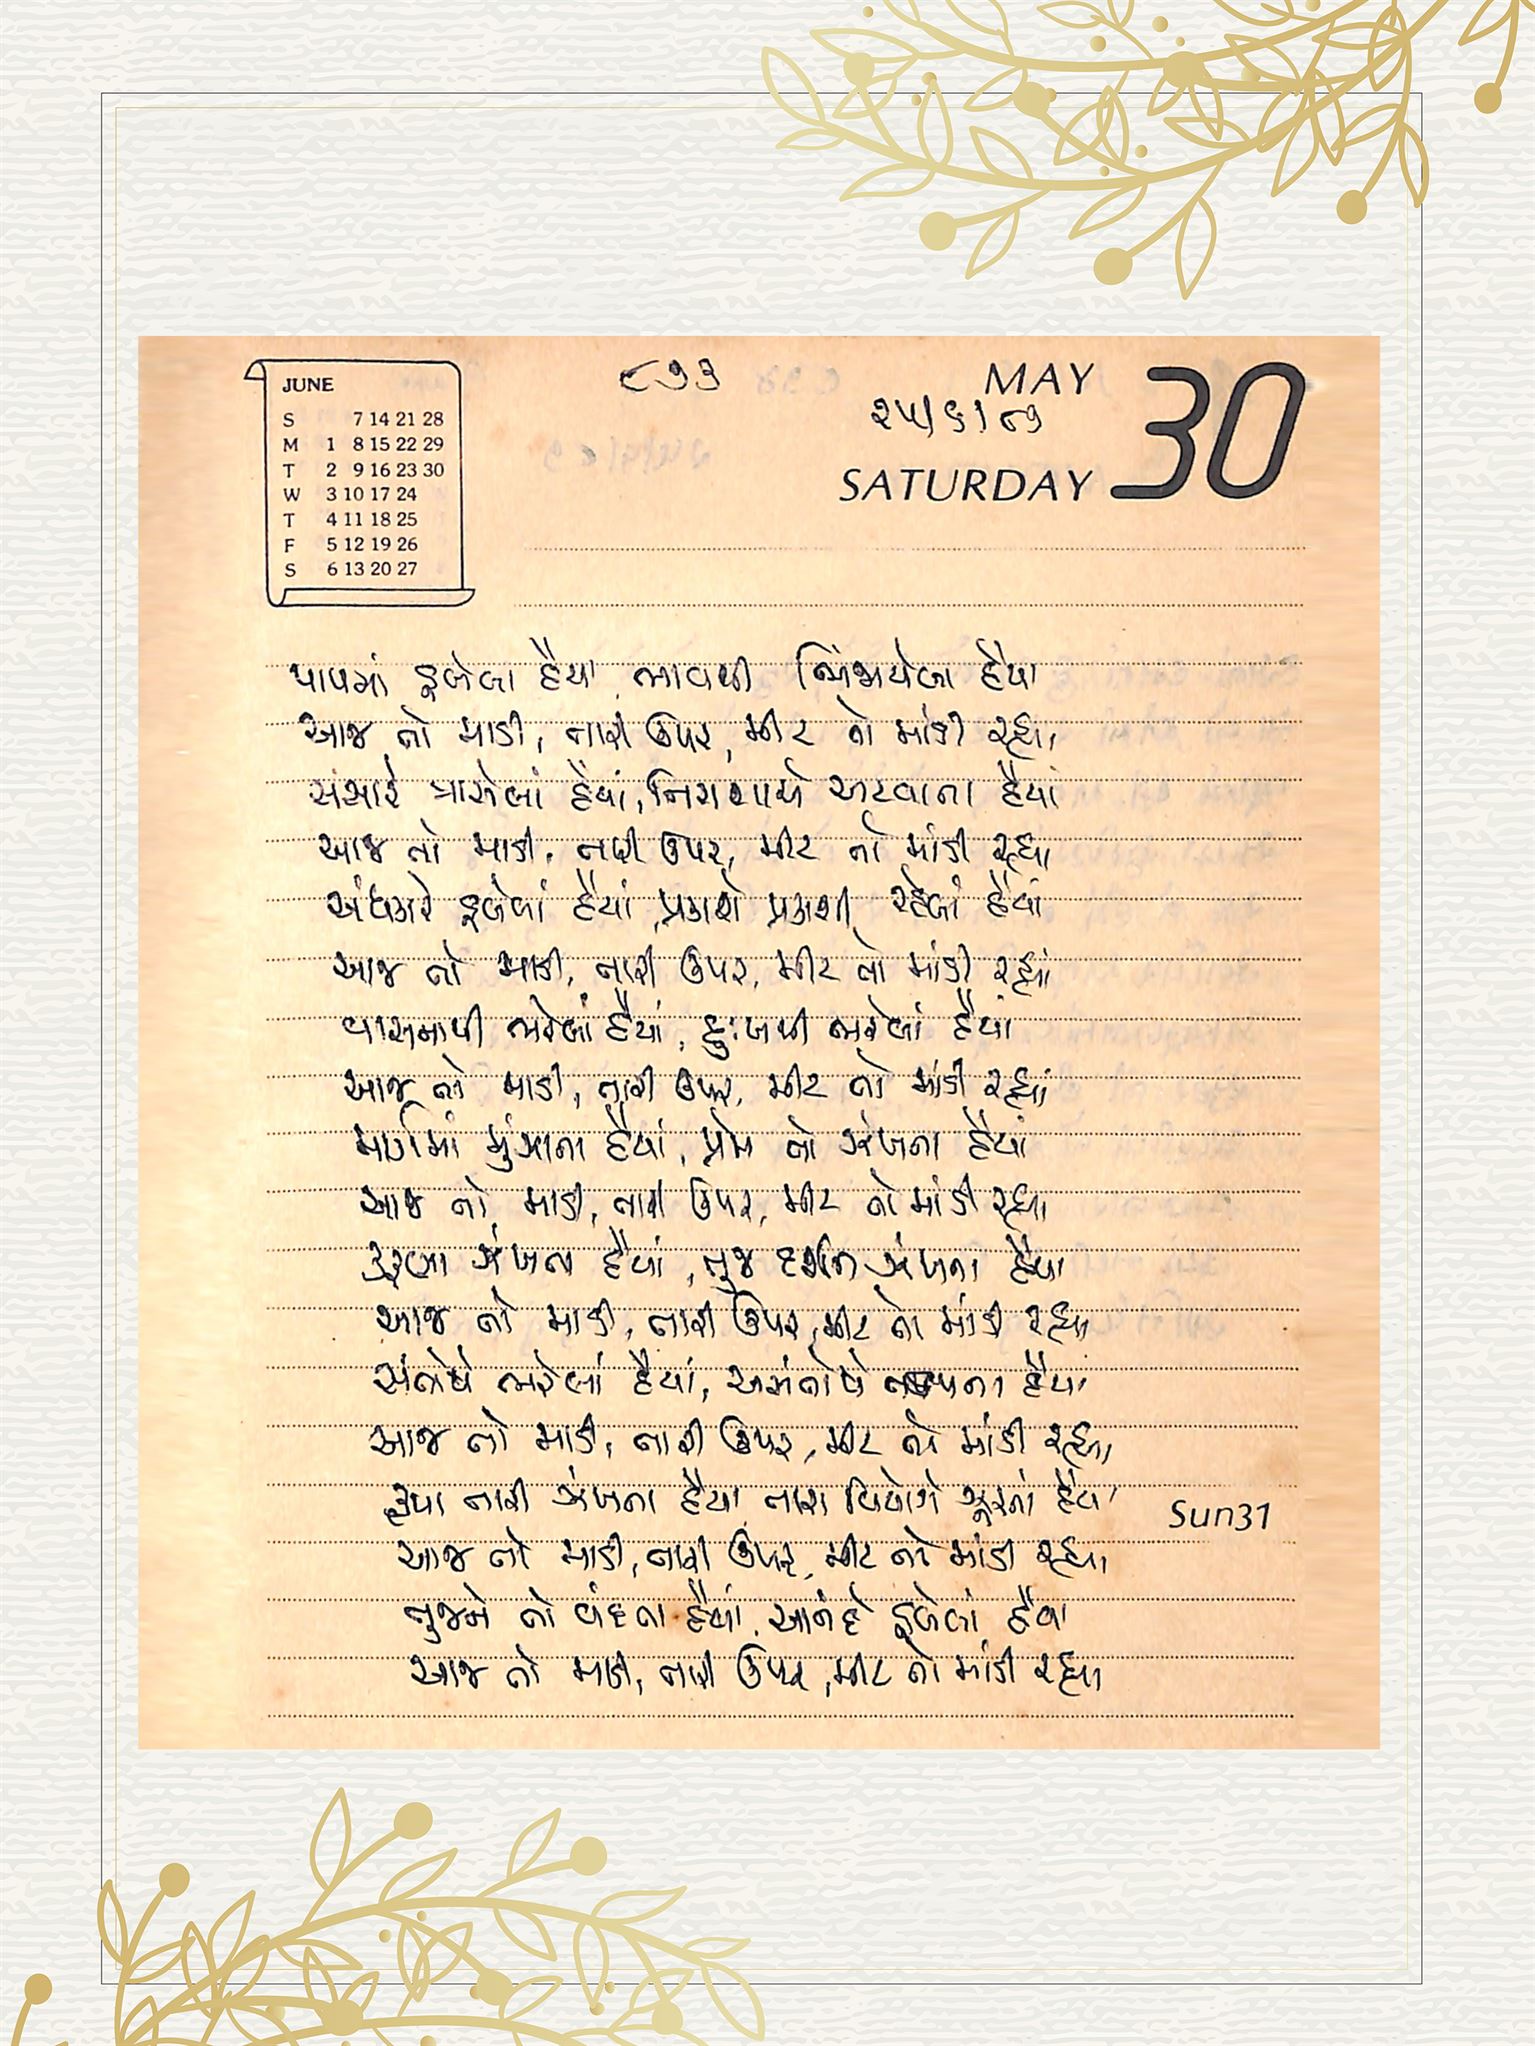 JUNE
S 7 14 21 28
M 1 8 15 22 29
T 2 9 16 23 30
W 3 10 17 24
T 4 11 18 25
F 5 12 19 26
S 6 13 20 27
૮૭૩
MAY 30
૨૫/૬/૮૭
SATURDAY
પાપમાં ડૂબેલા હૈયા, ભાવથી ભિંજાયેલા હૈયા
આજ તો માડી, તારી ઉપર, મીટ તો માંડી રહ્યા
સંસારે ત્રાસેલાં હૈયાં, નિરાશાએ અટવાતા હૈયાં
આજ તો માડી, તારી ઉપર, મીટ તો માંડી રહ્યા
અંધકારે ડૂબેલાં હૈયાં, પ્રકાશે પ્રકાશી રહેલાં હૈયાં
આજ તો માડી, તારી ઉપર, મીટ તો માંડી રહ્યાં
વાસનાથી ભરેલાં હૈયાં, દુઃખથી ભરેલાં હૈયાં
આજ તો માડી, તારી ઉપર, મીટ તો માંડી રહ્યાં
માર્ગમાં મુંઝાતા હૈયાં, પ્રેમ તો ઝંખતા હૈયાં
આજ તો માડી, તારી ઉપર, મીટ તો માંડી રહ્યા
કરુણા ઝંખતા હૈયાં, તુજ દર્શન ઝંખતા હૈયા
આજ તો માડી, તારી ઉપર, મીટ તો માંડી રહ્યા
સંતોષે ભરેલાં હૈયાં, અસંતોષે હૈયા
આજ તો માડી, તારી ઉપર, મીટ તો માંડી રહ્યા
કૃપા તારી ઝંખતા હૈયા તારા વિયોગે ઝૂરતાં હૈયા
Sun31
આજ તો માડી, તારી ઉપર, મીટ તો માંડી રહ્યા
તુજને તો વંદતા હૈયાં, આનંદે ડૂબેલાં હૈયા
આજ તો માડી, તારી ઉપર, મીટ તો માંડી રહ્યા